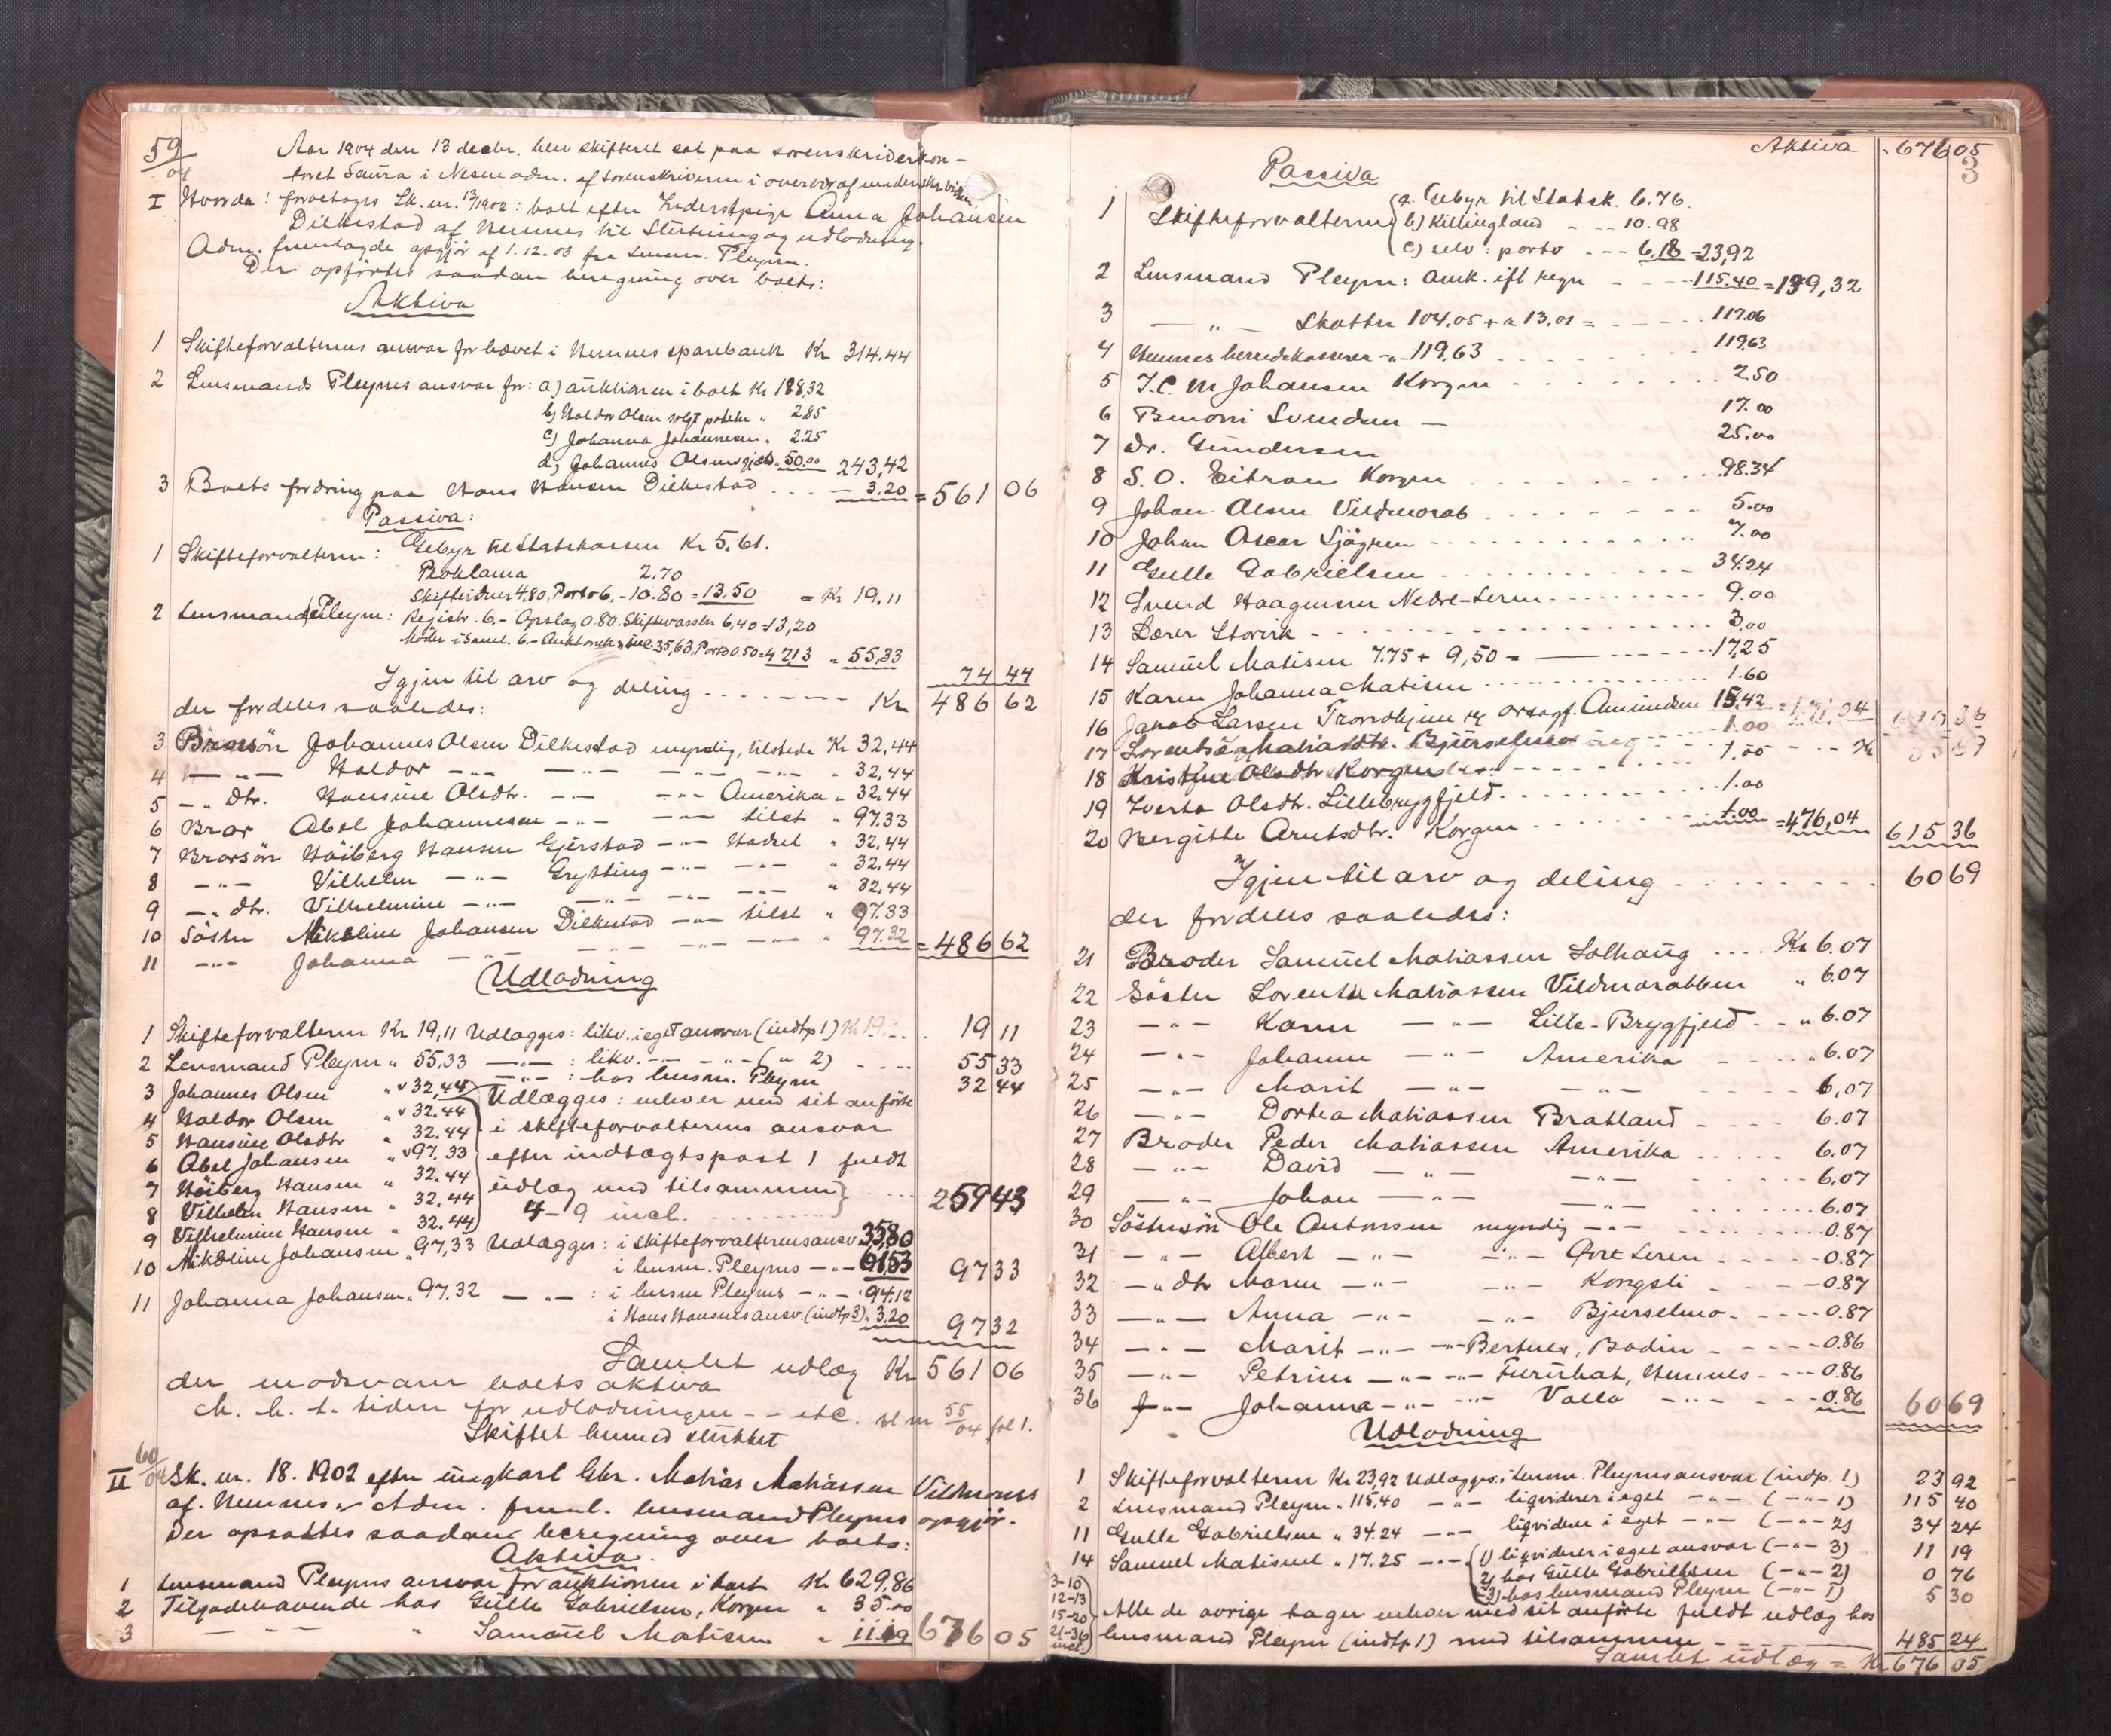 59/04
Aar 1904 den 13 decbr. blev skifteret sat paa sorenskriverkon-
toret Saura i Nesna adm. af sorenskriveren i overvær af underskr. vidner
I Hvorda: foretoges Sk. nr. 13/1902: boet efter Inderstpige Anna Johansen
Dilkestad af Hemnes til Slutning og udlodning.
Adm. fremlagde opgjør af 1.12.03 fra lensm. Pleym.
Der opførtes saadan beregning over boets:
Aktiva
1 Skifteforvalterens ansvar for hævet i Hemnes sparebank Kr 314.44
2 Lensmands Pleyms ansvar for: a) auktionen i boet Kr 188,32
b) Haldor Olsen solgt poteter " 2.85
c) Johanna Johannesen " 2.25
d) Johannes Olsens gjæld " 50.00 243,42
3 Boets fordring paa Hans Hansen Dilkestad . . . — 3.20 = 561 06
Passiva:
1 Skifteforvalteren: Gebyr til Statskassen Kr 5.61.
Proklama 2.70
Skifteidner 4.80, Porto 6.- 10.80 = 13,50 = Kr 19,11
2 Lensmand Pleym: Registr. 6.- Opslag 0.80. Skiftevarsler 6,40 = 13,20
Møder i Saml. 6.- Auktionsk. 35,63. Porto 0.50 = 42,13 " 55,33
74 44
Igjen til arv og deling . . . . . . . . Kr 486 62
der fordeles saaledes:
3 Brorsøn Johannes Olsen Dilkestad myndig, tilstede Kr 32,44
4 — " — Haldor — " — — " — — " — — " — " 32,44
5 — " dtr. Hansine Olsdtr. — " — — " — Amerika " 32.44
6 Bror Abel Johannesen — " — — " — tilst " 97.33
7 Brorsøn Høiberg Hansen Gjerstad — " — Hadsel " 32,44
8 — " — Vilhelm — " — Grytting — " — — " — " 32,44
9 — " dtr. Vilhelmine — " — — " — — " — — " — " 32,44
10 Søster Nikoline Johansen Dilkestad — " — tilst " 97.33
11 — " — Johanna — " — — " — — " — — " — " 97.32 = 486 62
Udlodning
1 Skifteforvalteren Kr 19,11 Udlægges: likv. i eget ansvar (indtp 1) Kr 19 . . 19 11
2 Lensmand Pleym " 55,33 — " — : likv. — " — — " — ( " 2) . . . . 55 33
— " — : hos lensm. Pleym 32 44
3 Johannes Olsen " 32,44 Udlægges: enhver med sit anførte
4 Haldor Olsen " 32.44 i skifteforvalterens ansvar
5 Hansine Olsdtr " 32.44
6 Abel Johansen " 97.33 efter indtægtspost 1 fuldt
7 Høiberg Hansen " 32.44 udlæg med tilsammen
8 Vilhelm Hansen " 32.44 4 - 9 incl. . . . . . . . 259 43
9 Vilhelmine Hansen " 32.44
10 Nikoline Johansen " 97,33 Udlægges: i skifteforvalterens ansv. 35.80
i lensm. Pleyms — " — 61,53 97 33
11 Johanna Johansen " 97.32 — " — : i lensm Pleyms — " — 94.12
i Hans Hansens ansv. (indtp 3) " 3,20 97 32
Samlet udlæg Kr 561 06
der modsvarer boets aktiva
M. h. t. tiden for udlodningen - - etc. se nr 55/04 fol 1.
Skiftet hermed sluttet
60/04
II Sk. nr. 18. 1902 efter ungkarl Chr. Matias Mathiassen Vildmorab
af Hemnes. Adm. freml. lensmand Pleyms opgjør.
Der opsattes saadan beregning over boets:
Aktiva.
1 Lensmand Pleyms ansvar for auktionen i boet Kr 629,86
2 Tilgodehavende hos Gulle Gabrielsen, Korgen " 35.00
3 — " — " Samuel Matisen " 11.19 676 05
Aktiva " 676 05
3
Passiva
1 Skifteforvalteren a. Gebyr til Statsk. 6.76.
b) Killingland - - - 10.98
c) selv: porto - - - 6.18 = 23,92
2 Lensmand Pleym: omk. ifl regn - - - 115.40 = 139,32
3 — " — Skatter 104.05 + " 13.01 = - - - - - 117.06
4 Hemnes herredskasserer " 119,63 - - - - - 119.63
5 J.C. M Johansen Korgen - - - - - - - 2.50
6 Benoni Svendsen — 17.00
7 Dr. Gundersen 25.00
8 S. O. Eitran Korgen . . . . . . . . . 98.34
9 Johan Olsen Vildmorab . . . - - - - 5.00
10 Johan Oscar Sjøgren - - - - - - - - 7.00
11 Gulle Gabrielsen . . . . . . . . . . 34.24
12 Svend Haagensen Nedre-Leren - - - - - - 9.00
13 Lærer Storvik - - - - - - - - - - - 3,00
14 Samuel Matisen 7.75 + 9,50 = - - - - - 17,25
15 Karen Johanna Matisen . . . . . . . . 1.60
16 Jakob Larsen Trondhjem Amundsen 15.42
17 Lorentse Mathiasdtr. Bjurselmo - - 1.00
18 Kristine Olsdtr Korgen - - - - - 1.00
19 Iverta Olsdtr. Lillebrygfjeld. . . . . . 1.00
20 Bergitte Arntsdtr. Korgen . . . . . . . 1.00 = 476,04 615 36
Igjen til arv og deling . . . . . . . . 60 69
der fordeles saaledes:
21 Broder Samuel Mathiassen Solhaug . . . . Kr 6.07
22 Søster Lorentse Mathiassen Vildmorabben " 6.07
23 — " — Karen — " — Lille-Brygfjeld - - " 6.07
24 — " — Johanne — " — Amerika - - - - " 6.07
25 — " — Marit — " — — " — - - - - 6,07
26 — " — Dortea Mathiassen Bratland - - - - 6.07
27 Broder Peder Mathiassen Amerika . . . . . 6.07
28 — " — David — " — — " — . . . . . 6,07
29 — " — Johan — " — — " — . . . . . 6.07
30 Søstersøn Ole Antonsen myndig — " — . . . . . 0.87
31 — " — Albert — " — — " — Øvre Leren - - - - 0.87
32 — " dtr Maren — " — — " — Kongsli - - - 0.87
33 — " — Anna — " — — " — Bjurselmo - - - - 0.87
34 — " — Marit — " — — " — Bertnes, Bodin - - - - 0.86
35 — " — Petrine — " — — " — Furuhat, Hemnes - - - 0.86
36 — " — Johanna — " — — " — Valla — " — - - - 0.86 60 69
Udlodning
1 Skifteforvalteren Kr 23,92 Udlægges: i lensm. Pleyms ansvar (indtp. 1) 23 92
2 Lensmand Pleym " 115,40 — " — liqviderer i eget — " — ( — " — 1) 115 40
11 Gulle Gabrielsen " 34.24 — " — liqviderer i eget — " — ( — " — 2) 34 24
14 Samuel Matisen " 17.25 — " — 1) liqviderer i eget ansvar ( — " — 3) 11 19
2) hos Gulle Gabrielsen ( — " — 2) 0 76
3) hos lensmand Pleym ( — " — 1) 5 30
3-10
12-13
15-20 Alle de øvrige tager enhver med sit anførte fuldt udlæg hos
21-36 incl. lensmand Pleym (indtp 1) med tilsammen - - - 485 24
Samlet udlæg = Kr 676 05